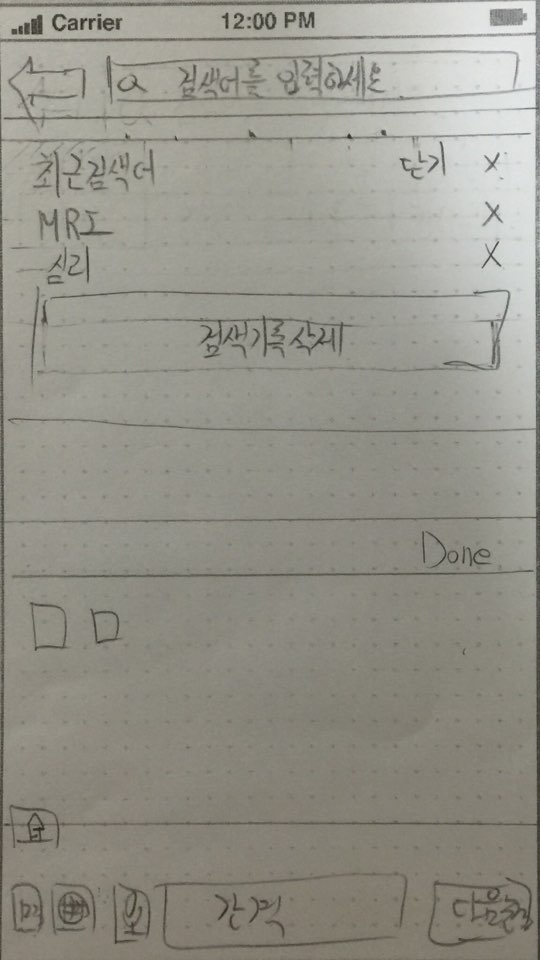 Carrier 12:00 PM
검색어를 입력하세요
최근검색어 닫기 X
MRI X
심리 X
검색기록삭제
Done
123
간격